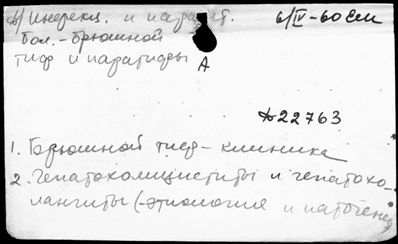 в) Инфекц. и паразит. 6/IV-60 Еш
Бол. - брюшной
тиф и паратифы А
№22763
1. Брюшной тиф - клиника
2. Гепатохолициститы и гепатохо-
лангиты (-этиология и патогенез